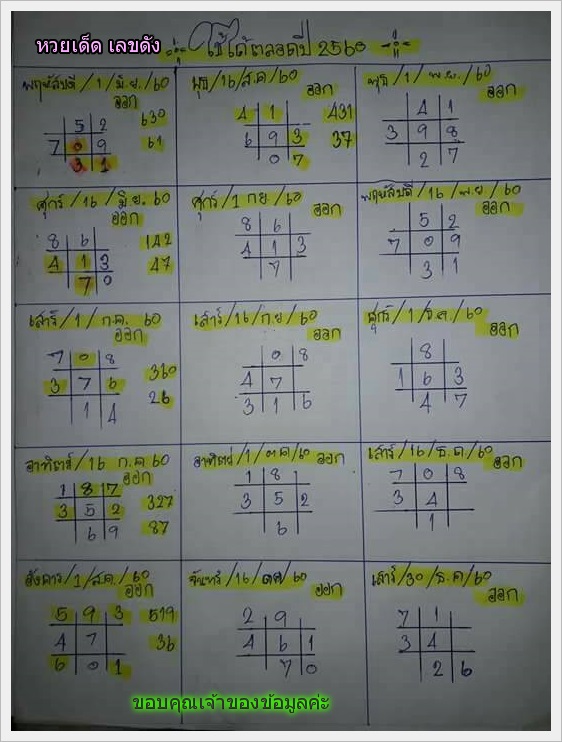 หวยเด็ด เลขดัง
ใช้ได้ตลอดปี 2560
พฤหัสบดี/1/มิ.ย./60
ออก
5 2
630
7 0 9
61
3 1
พุธ/16/ส.ค/60
ออก
4 1
431
6 9 3
37
0 7
พุธ/1/พ.ย./60
ออก
4 1
3 9 8
2 7
ศุกร์/16/มิ.ย. 60
ออก
8 6
142
4 1 3
47
7 0
ศุกร์/1 กย/60
ออก
8 6
4 1 3
7
พฤหัสบดี/16/พ.ย/60
ออก
5 2
7 0 9
3 1
เสาร์/1/ก.ค. 60
ออก
7 0 8
360
3 7 6
26
1 4
เสาร์/16/ก.ย/60
ออก
0 8
4 7
3 1 6
ศุกร์/1/ธ.ค./60
ออก
8
1 6 3
4 7
อาทิตย์/16 ก.ค 60
ออก
1 8 17
327
3 5 2
87
6 9
อาทิตย์/1/ต.ค/60 ออก
1 8 1
3 5 2
6
เสาร์/16/ธ.ค/60
ออก
7 0 8
3 4
1
อังคาร/1/ส.ค./60
ออก
5 9 3
519
4 7
36
6 0 1
จันทร์/16/ตค/60
ออก
2 9
4 6 1
7 0
เสาร์/30/ธ.ค/60
ออก
7 1
3 4
2 6
ขอบคุณเจ้าของข้อมูลค่ะ